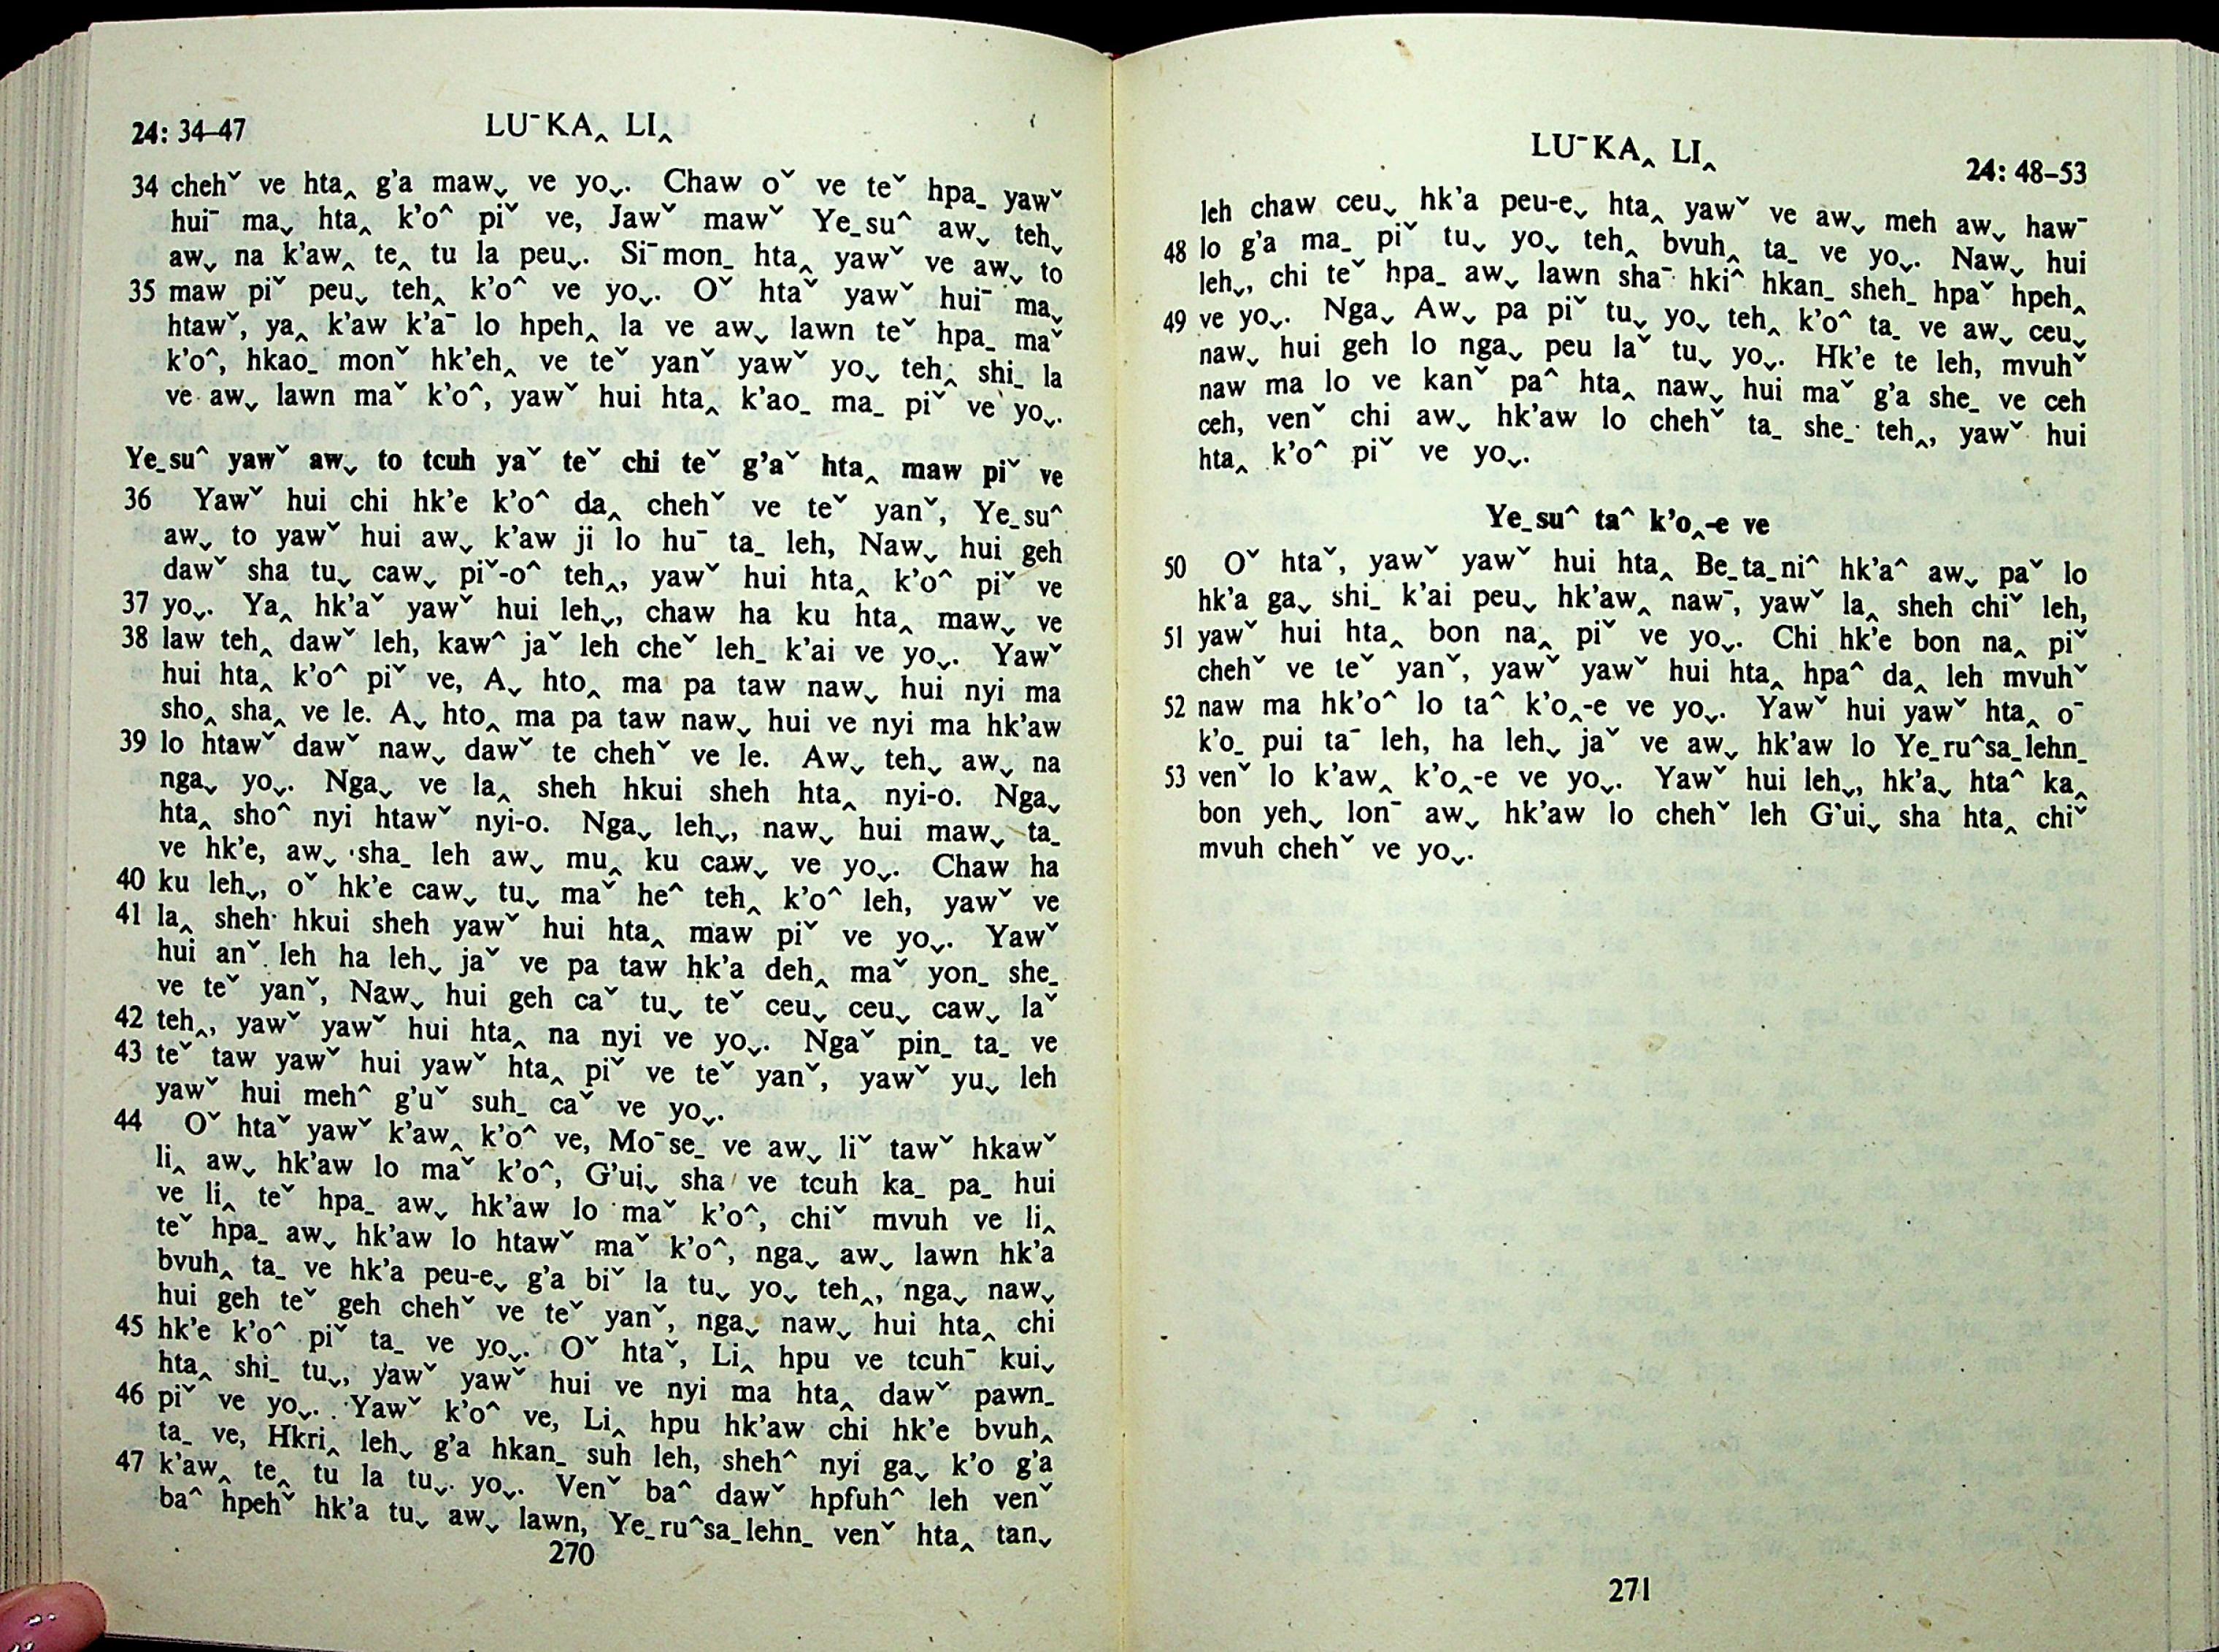 24: 34–47
LUˉKA‸ LI‸
34 chehˇ ve hta‸ g'a mawˬ ve yoˬ. Chaw oˇ ve teˇ hpa_ yawˇ
huiˉ maˬ hta‸ k'o^ piˇ ve, Jawˇ mawˇ Ye_su^ awˬ tehˬ
awˬ na k'aw‸ te‸ tu la peuˬ. Siˉmon_ hta‸ yawˇ ve awˬ to
35 maw piˇ peuˬ teh‸ k'o^ ve yoˬ. Oˇ htaˇ yawˇ huiˉ maˬ
htawˇ, ya‸ k'aw k'aˉ lo hpeh‸ la ve awˬ lawn teˇ hpa_ maˇ
k'o^, hkao_ monˇ hk'eh‸ ve teˇ yanˇ yawˇ yoˬ teh‸ shi_ la
ve awˬ lawn maˇ k'o^, yawˇ hui hta‸ k'ao_ ma_ piˇ ve yoˬ.
Ye_su^ yawˇ awˬ to tcuh yaˇ teˇ chi teˇ g'aˇ hta‸ maw piˇ ve
36 Yawˇ hui chi hk'e k'o^ da‸ chehˇ ve teˇ yanˇ, Ye_su^
awˬ to yawˇ hui awˬ k'aw ji lo huˉ ta_ leh, Nawˬ hui geh
dawˇ sha tuˬ cawˬ piˇ-o^ teh‸, yawˇ hui hta‸ k'o^ piˇ ve
37 yoˬ. Ya‸ hk'aˇ yawˇ hui lehˬ, chaw ha ku hta‸ mawˬ ve
38 law teh‸ dawˇ leh, kaw^ jaˇ leh cheˇ leh_ k'ai ve yoˬ. Yawˇ
hui hta‸ k'o^ piˇ ve, Aˬ hto‸ ma pa taw nawˬ hui nyi ma
sho‸ sha‸ ve le. Aˬ hto‸ ma pa taw nawˬ hui ve nyi ma hk'aw
39 lo htawˇ dawˇ nawˬ dawˇ te chehˇ ve le. Awˬ tehˬ awˬ na
ngaˬ yoˬ. Ngaˬ ve la‸ sheh hkui sheh hta‸ nyi-o. Ngaˬ
hta‸ sho^ nyi htawˇ nyi-o. Ngaˬ lehˬ, nawˬ hui mawˬ ta_
ve hk'e, awˬ sha_ leh awˬ mu‸ ku cawˬ ve yoˬ. Chaw ha
40 ku lehˬ, oˇ hk'e cawˬ tuˬ maˇ he^ teh‸ k'o^ leh, yawˇ ve
41 la‸ sheh hkui sheh yawˇ hui hta‸ maw piˇ ve yoˬ. Yawˇ
hui anˇ leh ha lehˬ jaˇ ve pa taw hk'a deh‸ maˇ yon_ she_
ve teˇ yanˇ, Nawˬ hui geh caˇ tuˬ teˇ ceuˬ ceuˬ cawˬ laˇ
42 teh‸, yawˇ yawˇ hui hta‸ na nyi ve yoˬ. Ngaˇ pin_ ta_ ve
43 teˇ taw yawˇ hui yawˇ hta‸ piˇ ve teˇ yanˇ, yawˇ yuˬ leh
yawˇ hui meh^ g'uˇ suh_ caˇ ve yoˬ.
44 Oˇ htaˇ yawˇ k'aw‸ k'o^ ve, Moˉse_ ve awˬ liˇ tawˇ hkawˇ
li‸ awˬ hk'aw lo maˇ k'o^, G'uiˬ sha ve tcuh ka_ pa_ hui
ve li‸ teˇ hpa_ awˬ hk'aw lo maˇ k'o^, chiˇ mvuh ve li‸
teˇ hpa_ awˬ hk'aw lo htawˇ maˇ k'o^, ngaˬ awˬ lawn hk'a
bvuh‸ ta_ ve hk'a peu-eˬ g'a biˇ la tuˬ yoˬ teh‸, ngaˬ nawˬ
hui geh teˇ geh chehˇ ve teˇ yanˇ, ngaˬ nawˬ hui hta‸ chi
45 hk'e k'o^ piˇ ta_ ve yoˬ. Oˇ htaˇ, Li‸ hpu ve tcuhˉ kuiˬ
hta‸ shi_ tuˬ, yawˇ yawˇ hui ve nyi ma hta‸ dawˇ pawn_
46 piˇ ve yoˬ. Yawˇ k'o^ ve, Li‸ hpu hk'aw chi hk'e bvuh‸
ta_ ve, Hkri‸ lehˬ g'a hkan_ suh leh, sheh^ nyi gaˬ k'o g'a
47 k'aw‸ te‸ tu la tuˬ yoˬ. Venˇ ba^ dawˇ hpfuh^ leh venˇ
ba^ hpehˇ hk'a tuˬ awˬ lawn, Ye_ru^sa_lehn_ venˇ hta‸ tanˬ
270
LUˉKA‸ LI‸
24: 48–53
leh chaw ceuˬ hk'a peu-eˬ hta‸ yawˇ ve awˬ meh awˬ hawˉ
48 lo g'a ma_ piˇ tuˬ yoˬ teh‸ bvuh‸ ta_ ve yoˬ. Nawˬ hui
lehˬ, chi teˇ hpa_ awˬ lawn shaˉ hki^ hkan_ sheh_ hpaˇ hpeh‸
49 ve yoˬ. Ngaˬ Awˬ pa piˇ tuˬ yoˬ teh‸ k'o^ ta_ ve awˬ ceuˬ
nawˬ hui geh lo ngaˬ peu laˇ tuˬ yoˬ. Hk'e te leh, mvuhˇ
naw ma lo ve kanˇ pa^ hta‸ nawˬ hui maˇ g'a she_ ve ceh
ceh, venˇ chi awˬ hk'aw lo chehˇ ta_ she_ teh‸, yawˇ hui
hta‸ k'o^ piˇ ve yoˬ.
Ye_su^ ta^ k'o‸-e ve
50 Oˇ htaˇ, yawˇ yawˇ hui hta‸ Be_ta_ni^ hk'a^ awˬ paˇ lo
hk'a gaˬ shi_ k'ai peuˬ hk'aw‸ nawˉ, yawˇ la‸ sheh chiˇ leh,
51 yawˇ hui hta‸ bon na‸ piˇ ve yoˬ. Chi hk'e bon na‸ piˇ
chehˇ ve teˇ yanˇ, yawˇ yawˇ hui hta‸ hpa^ da‸ leh mvuhˇ
52 naw ma hk'o^ lo ta^ k'o‸-e ve yoˬ. Yawˇ hui yawˇ hta‸ oˉ
k'o_ pui taˉ leh, ha lehˬ jaˇ ve awˬ hk'aw lo Ye_ru^sa_lehn_
53 venˇ lo k'aw‸ k'o‸-e ve yoˬ. Yawˇ hui lehˬ, hk'aˬ hta^ ka‸
bon yehˬ lonˉ awˬ hk'aw lo chehˇ leh G'uiˬ sha hta‸ chiˇ
mvuh chehˇ ve yoˬ.
271